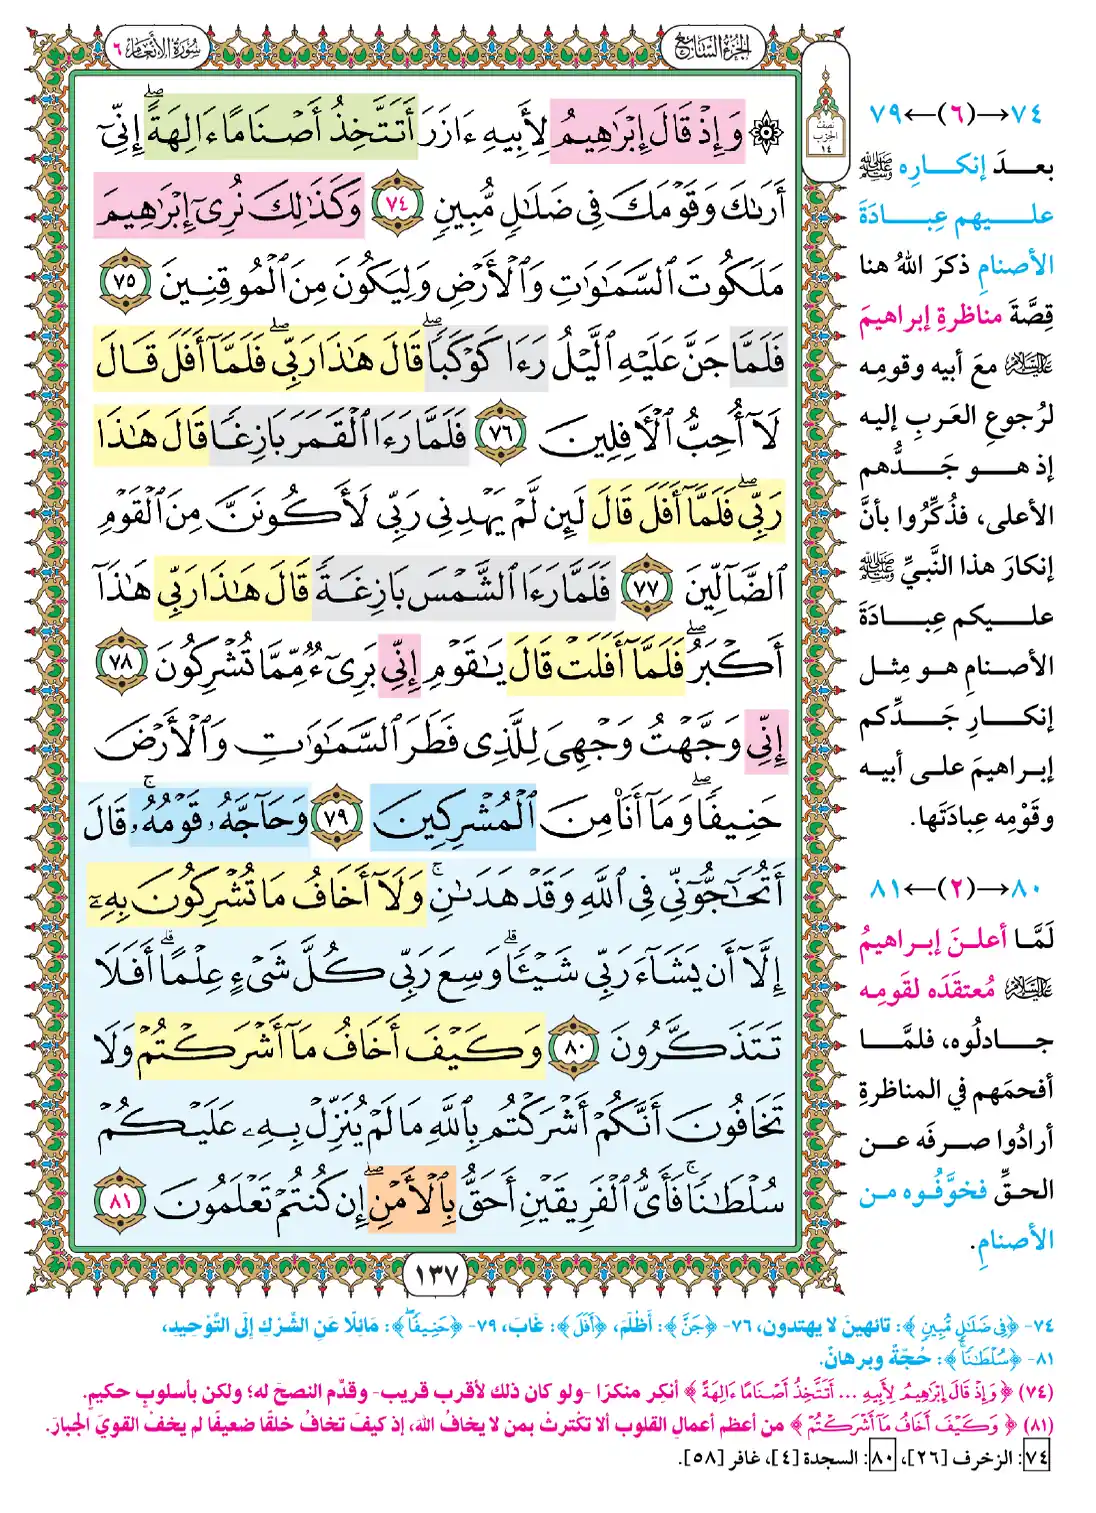 الجزء السابع
سورة الأنعام ٦
نصف
الحزب
١٤
۞ وَإِذْ قَالَ إِبْرَٰهِيمُ لِأَبِيهِ ءَازَرَ أَتَتَّخِذُ أَصْنَامًا ءَالِهَةً ۖ إِنِّىٓ
أَرَىٰكَ وَقَوْمَكَ فِى ضَلَٰلٍ مُّبِينٍ ٧٤ وَكَذَٰلِكَ نُرِىٓ إِبْرَٰهِيمَ
مَلَكُوتَ ٱلسَّمَٰوَٰتِ وَٱلْأَرْضِ وَلِيَكُونَ مِنَ ٱلْمُوقِنِينَ ٧٥
فَلَمَّا جَنَّ عَلَيْهِ ٱلَّيْلُ رَءَا كَوْكَبًا ۖ قَالَ هَٰذَا رَبِّى ۖ فَلَمَّآ أَفَلَ قَالَ
لَآ أُحِبُّ ٱلْءَافِلِينَ ٧٦ فَلَمَّا رَءَا ٱلْقَمَرَ بَازِغًا قَالَ هَٰذَا
رَبِّى ۖ فَلَمَّآ أَفَلَ قَالَ لَئِن لَّمْ يَهْدِنِى رَبِّى لَأَكُونَنَّ مِنَ ٱلْقَوْمِ
ٱلضَّآلِّينَ ٧٧ فَلَمَّا رَءَا ٱلشَّمْسَ بَازِغَةً قَالَ هَٰذَا رَبِّى هَٰذَآ
أَكْبَرُ ۖ فَلَمَّآ أَفَلَتْ قَالَ يَٰقَوْمِ إِنِّى بَرِىٓءٌ مِّمَّا تُشْرِكُونَ ٧٨
إِنِّى وَجَّهْتُ وَجْهِىَ لِلَّذِى فَطَرَ ٱلسَّمَٰوَٰتِ وَٱلْأَرْضَ
حَنِيفًا ۖ وَمَآ أَنَا۠ مِنَ ٱلْمُشْرِكِينَ ٧٩ وَحَآجَّهُۥ قَوْمُهُۥ ۚ قَالَ
أَتُحَٰٓجُّوٓنِّى فِى ٱللَّهِ وَقَدْ هَدَىٰنِ ۚ وَلَآ أَخَافُ مَا تُشْرِكُونَ بِهِۦٓ
إِلَّآ أَن يَشَآءَ رَبِّى شَيْـًٔا ۗ وَسِعَ رَبِّى كُلَّ شَىْءٍ عِلْمًا ۗ أَفَلَا
تَتَذَكَّرُونَ ٨٠ وَكَيْفَ أَخَافُ مَآ أَشْرَكْتُمْ وَلَا
تَخَافُونَ أَنَّكُمْ أَشْرَكْتُم بِٱللَّهِ مَا لَمْ يُنَزِّلْ بِهِۦ عَلَيْكُمْ
سُلْطَٰنًا ۚ فَأَىُّ ٱلْفَرِيقَيْنِ أَحَقُّ بِٱلْأَمْنِ ۖ إِن كُنتُمْ تَعْلَمُونَ ٨١
١٣٧
٧٤→(٦)←٧٩
بعدَ إنكارِه ﷺ
عليهم عِبادَةَ
الأصنامِ ذكرَ اللهُ هنا
قِصَّةَ مناظرةِ إبراهيمَ
عليه السلام معَ أبيه وقومِه
لرُجوعِ العَربِ إليه
إذ هو جَدُّهم
الأعلى، فذُكِّرُوا بأنَّ
إنكارَ هذا النَّبيِّ ﷺ
عليكم عِبادَةَ
الأصنامِ هو مِثل
إنكارِ جَدِّكم
إبراهيمَ على أبيه
وقَوْمِه عِبادَتَها.
٨٠→(٢)←٨١
لَمَّا أعلنَ إبراهيمُ
عليه السلام مُعتقَدَه لقَومِه
جادلُوه، فلمَّا
أفحمَهم في المناظرةِ
أرادُوا صرفَه عن
الحقِّ فخوَّفُوه من
الأصنامِ.
٧٤- ﴿فِي ضَلَٰلٍ مُّبِينٍ﴾: تائهينَ لا يهتدون، ٧٦- ﴿جَنَّ﴾: أَظْلَمَ، ﴿أَفَلَ﴾: غَابَ، ٧٩- ﴿حَنِيفًا ۖ﴾: مَائِلًا عَنِ الشِّرْكِ إلَى التَّوْحِيدِ،
٨١- ﴿سُلْطَٰنًا ۚ﴾: حُجَّةً وبرهانً.
(٧٤) ﴿وَإِذْ قَالَ إِبْرَٰهِيمُ لِأَبِيهِ ... أَتَتَّخِذُ أَصْنَامًا ءَالِهَةً﴾ أنكِر منكرًا -ولو كان ذلك لأقرب قريب- وقدِّم النصحَ له؛ ولكن بأسلوبٍ حكيمٍ.
(٨١) ﴿وَكَيْفَ أَخَافُ مَآ أَشْرَكْتُمْ﴾ من أعظم أعمالِ القلوب ألا تكترثَ بمن لا يخافُ اللهَ، إذ كيفَ تخافُ خلقًا ضعيفًا لم يخفْ القويَّ الجبارَ.
٧٤: الزخرف [٢٦]، ٨٠: السجدة [٤]، غافر [٥٨].